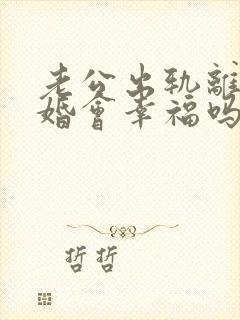 老公出轨離
婚會幸福吗
哲哲